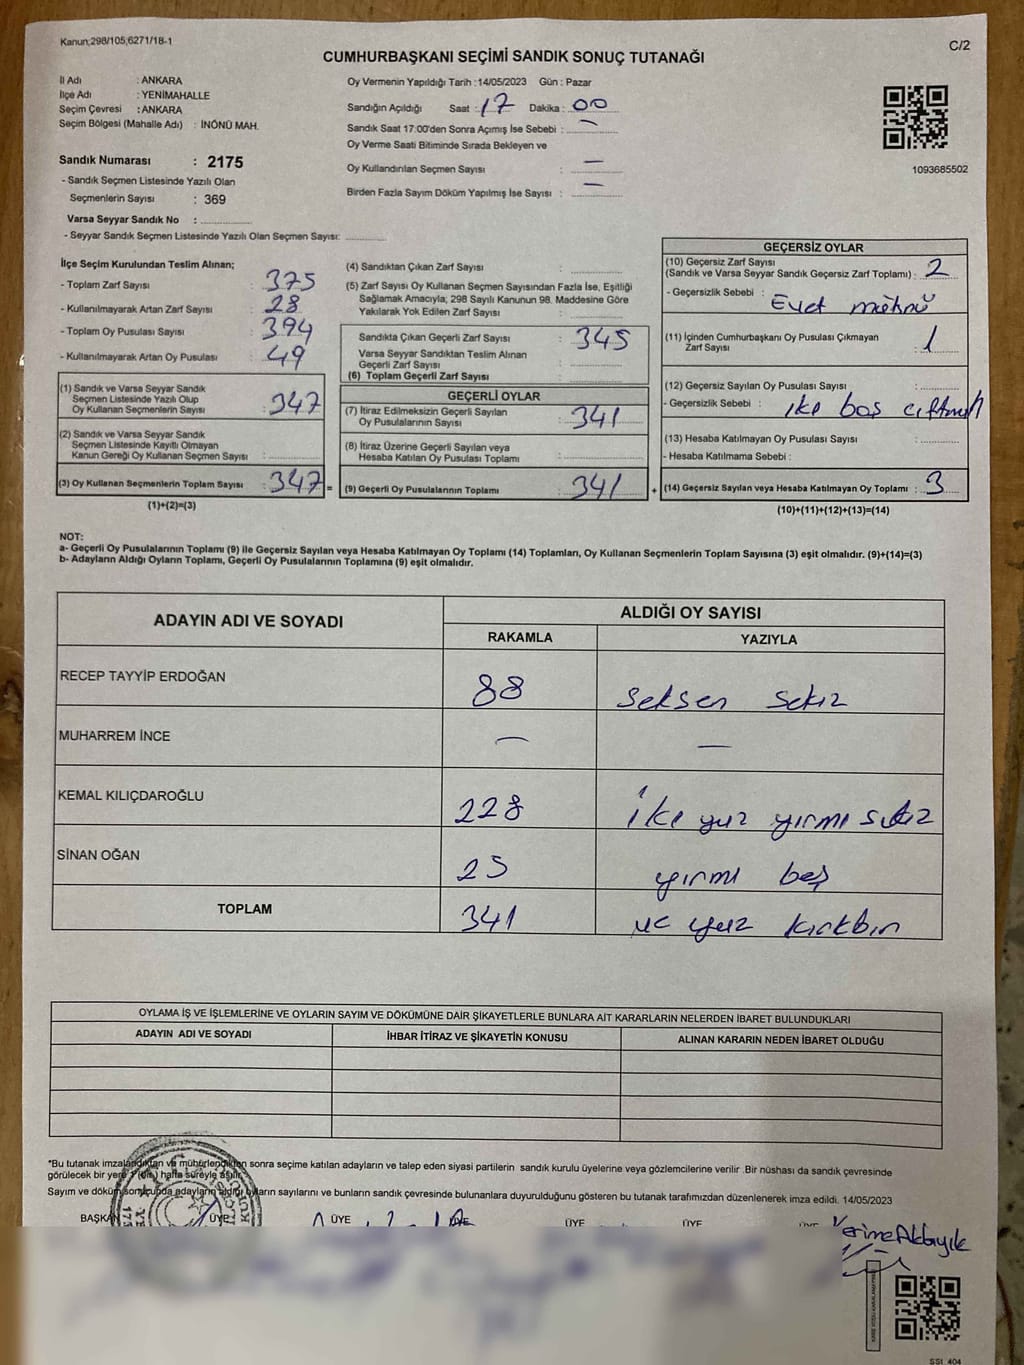 Kanun;298/105;6271/18-1
C/2
CUMHURBAŞKANI SEÇİMİ SANDIK SONUÇ TUTANAĞI
İl Adı : ANKARA
İlçe Adı : YENİMAHALLE
Seçim Çevresi : ANKARA
Seçim Bölgesi (Mahalle Adı) : İNÖNÜ MAH.
Sandık Numarası : 2175
- Sandık Seçmen Listesinde Yazılı Olan
Seçmenlerin Sayısı : 369
Varsa Seyyar Sandık No :
- Seyyar Sandık Seçmen Listesinde Yazılı Olan Seçmen Sayısı:
Oy Vermenin Yapıldığı Tarih : 14/05/2023 Gün : Pazar
Sandığın Açıldığı Saat : 17 Dakika : 00
Sandık Saat 17:00'den Sonra Açımış İse Sebebi : —
Oy Verme Saati Bitiminde Sırada Bekleyen ve
Oy Kullandırılan Seçmen Sayısı : —
Birden Fazla Sayım Döküm Yapılmış İse Sayısı : —
1093685502
İlçe Seçim Kurulundan Teslim Alınan;
- Toplam Zarf Sayısı : 375
- Kullanılmayarak Artan Zarf Sayısı : 28
- Toplam Oy Pusulası Sayısı : 394
- Kullanılmayarak Artan Oy Pusulası : 49
(1) Sandık ve Varsa Seyyar Sandık
Seçmen Listesinde Yazılı Olup
Oy Kullanan Seçmenlerin Sayısı : 347
(2) Sandık ve Varsa Seyyar Sandık
Seçmen Listesinde Kayıtlı Olmayan
Kanun Gereği Oy Kullanan Seçmen Sayısı :
(3) Oy Kullanan Seçmenlerin Toplam Sayısı : 347 =
(1)+(2)=(3)
(4) Sandıktan Çıkan Zarf Sayısı :
(5) Zarf Sayısı Oy Kullanan Seçmen Sayısından Fazla İse, Eşitliği
Sağlamak Amacıyla; 298 Sayılı Kanunun 98. Maddesine Göre
Yakılarak Yok Edilen Zarf Sayısı :
Sandıkta Çıkan Geçerli Zarf Sayısı : 345
Varsa Seyyar Sandıktan Teslim Alınan
Geçerli Zarf Sayısı :
(6) Toplam Geçerli Zarf Sayısı :
GEÇERLİ OYLAR
(7) İtiraz Edilmeksizin Geçerli Sayılan
Oy Pusulalarının Sayısı : 341
(8) İtiraz Üzerine Geçerli Sayılan veya
Hesaba Katılan Oy Pusulası Toplamı :
(9) Geçerli Oy Pusulalarının Toplamı : 341 +
GEÇERSİZ OYLAR
(10) Geçersiz Zarf Sayısı
(Sandık ve Varsa Seyyar Sandık Geçersiz Zarf Toplamı) : 2
- Geçersizlik Sebebi : Evet mührü
(11) İçinden Cumhurbaşkanı Oy Pusulası Çıkmayan
Zarf Sayısı : 1
(12) Geçersiz Sayılan Oy Pusulası Sayısı :
- Geçersizlik Sebebi : iki boş
(13) Hesaba Katılmayan Oy Pusulası Sayısı :
- Hesaba Katılmama Sebebi :
(14) Geçersiz Sayılan veya Hesaba Katılmayan Oy Toplamı : 3
(10)+(11)+(12)+(13)=(14)
NOT:
a- Geçerli Oy Pusulalarının Toplamı (9) ile Geçersiz Sayılan veya Hesaba Katılmayan Oy Toplamı (14) Toplamları, Oy Kullanan Seçmenlerin Toplam Sayısına (3) eşit olmalıdır. (9)+(14)=(3)
b- Adayların Aldığı Oyların Toplamı, Geçerli Oy Pusulalarının Toplamına (9) eşit olmalıdır.
ADAYIN ADI VE SOYADI
ALDIĞI OY SAYISI
RAKAMLA YAZIYLA
RECEP TAYYİP ERDOĞAN 88 seksen sekiz
MUHARREM İNCE — —
KEMAL KILIÇDAROĞLU 228 iki yuz yirmi sekiz
SİNAN OĞAN 25 yirmi beş
TOPLAM 341 uc yuz kırkbir
OYLAMA İŞ VE İŞLEMLERİNE VE OYLARIN SAYIM VE DÖKÜMÜNE DAİR ŞİKAYETLERLE BUNLARA AİT KARARLARIN NELERDEN İBARET BULUNDUKLARI
ADAYIN ADI VE SOYADI İHBAR İTİRAZ VE ŞİKAYETİN KONUSU ALINAN KARARIN NEDEN İBARET OLDUĞU
*Bu tutanak imzalandıktan ve mühürlendikten sonra seçime katılan adayların ve talep eden siyasi partilerin sandık kurulu üyelerine veya gözlemcilerine verilir .Bir nüshası da sandık çevresinde
görülecek bir yere 1 (bir) hafta süreyle asılır.
Sayım ve döküm sonucunda adayların aldığı oyların sayılarını ve bunların sandık çevresinde bulunanlara duyurulduğunu gösteren bu tutanak tarafımızdan düzenlenerek imza edildi. 14/05/2023
BAŞKAN ÜYE ÜYE ÜYE ÜYE ÜYE
SSI_404